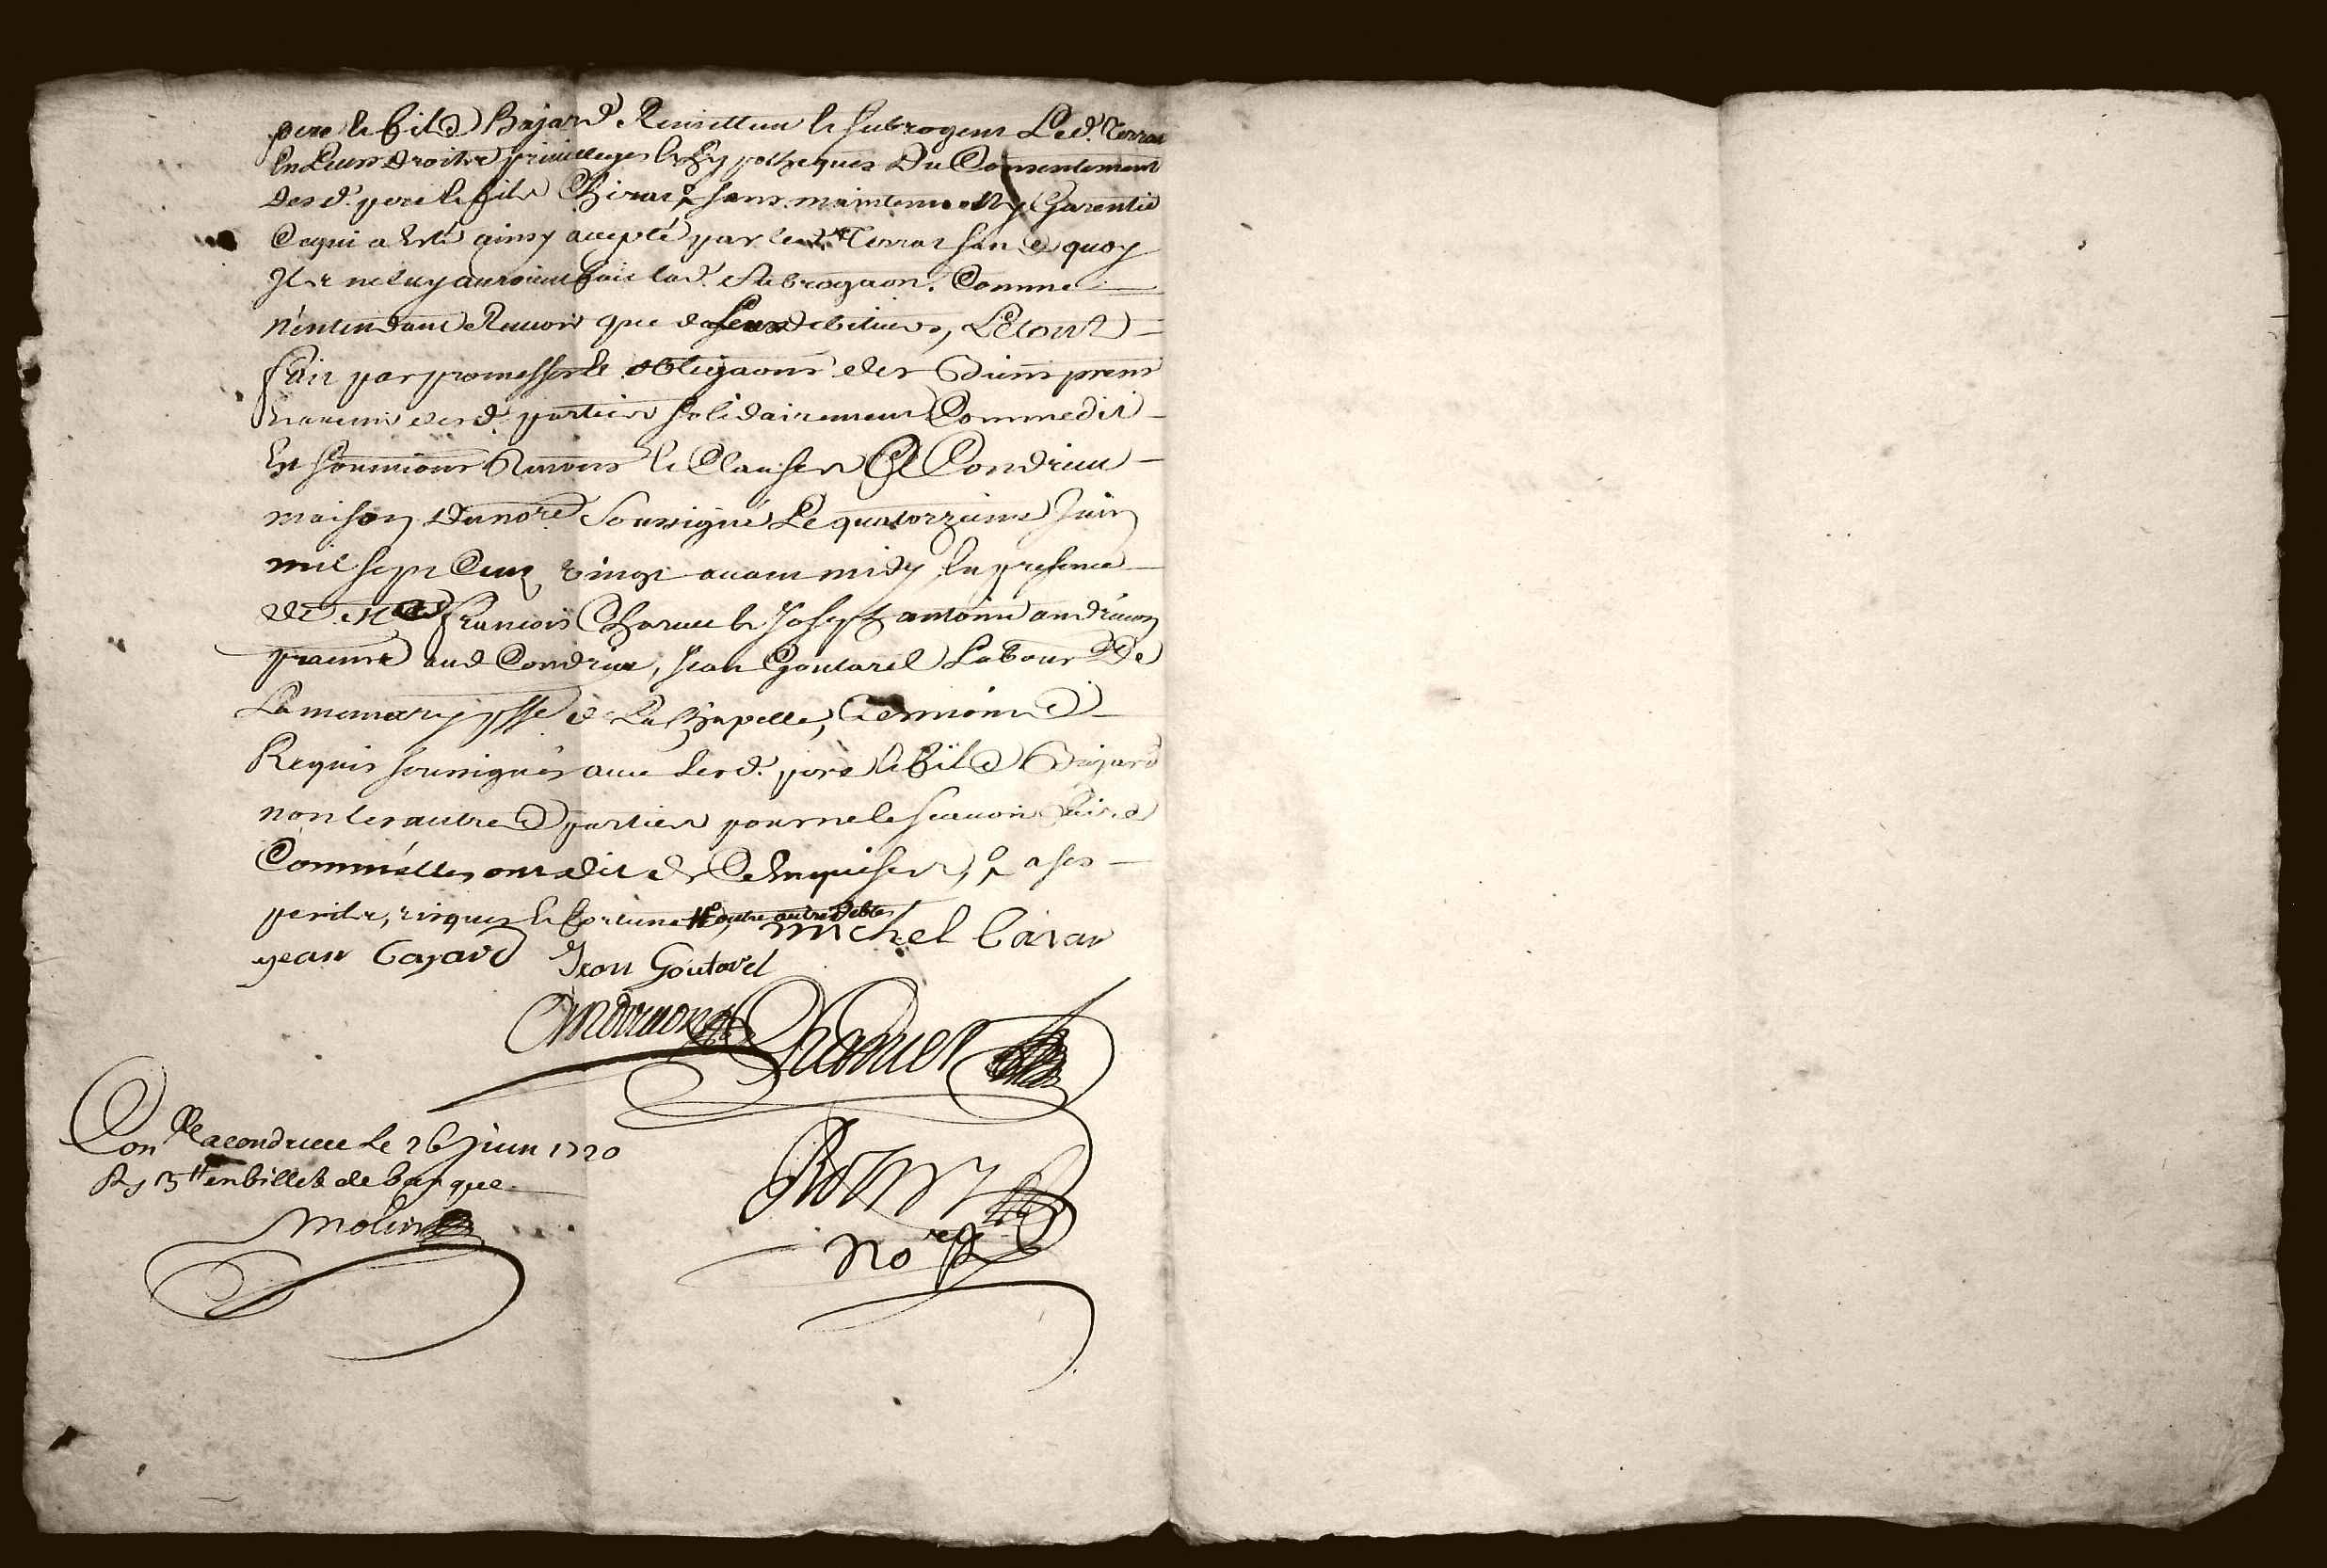 pere & fils Bajard Remettent & subrogent Led. Terrat
En Leurs droits privilleges & hypotheques Du Consentement
Desd. pere & fils sans maintenue ny Garentie
Ce qui a Esté ainsy accepté par led. Terrat sans quoy
Ils ne luy auroient fait lad. Subrogaon. Comme
n'entendant Recevoir que de Leurs debiteurs, Le tout
fait par promesses & obligaons des Biens prens
& avenir desd. parties solidairement Comme dit
Est soumions Renons & Clauses Condrieu
maison Du nore Soussigné Le quatorzieme Juin
mil sept Cent vingt avant midy En presence
de François & Joseph antoine andrieu
aud Condrieu, Jean Goutarel Labour De
psse de La Chapelle, Temoins
Requis soussignés avec Lesd. pere & fils Bajard
non les autres parties pour ne le scavoir faire
Comm'elles ont dit de Ce Enquises, a ses
perils, risques & fortune outre autre debte
michel Baiar
jean Bajard Jean Goutarel
Con lle a condrieu Le 26 juin 1720
en billet de banque
molin
nore